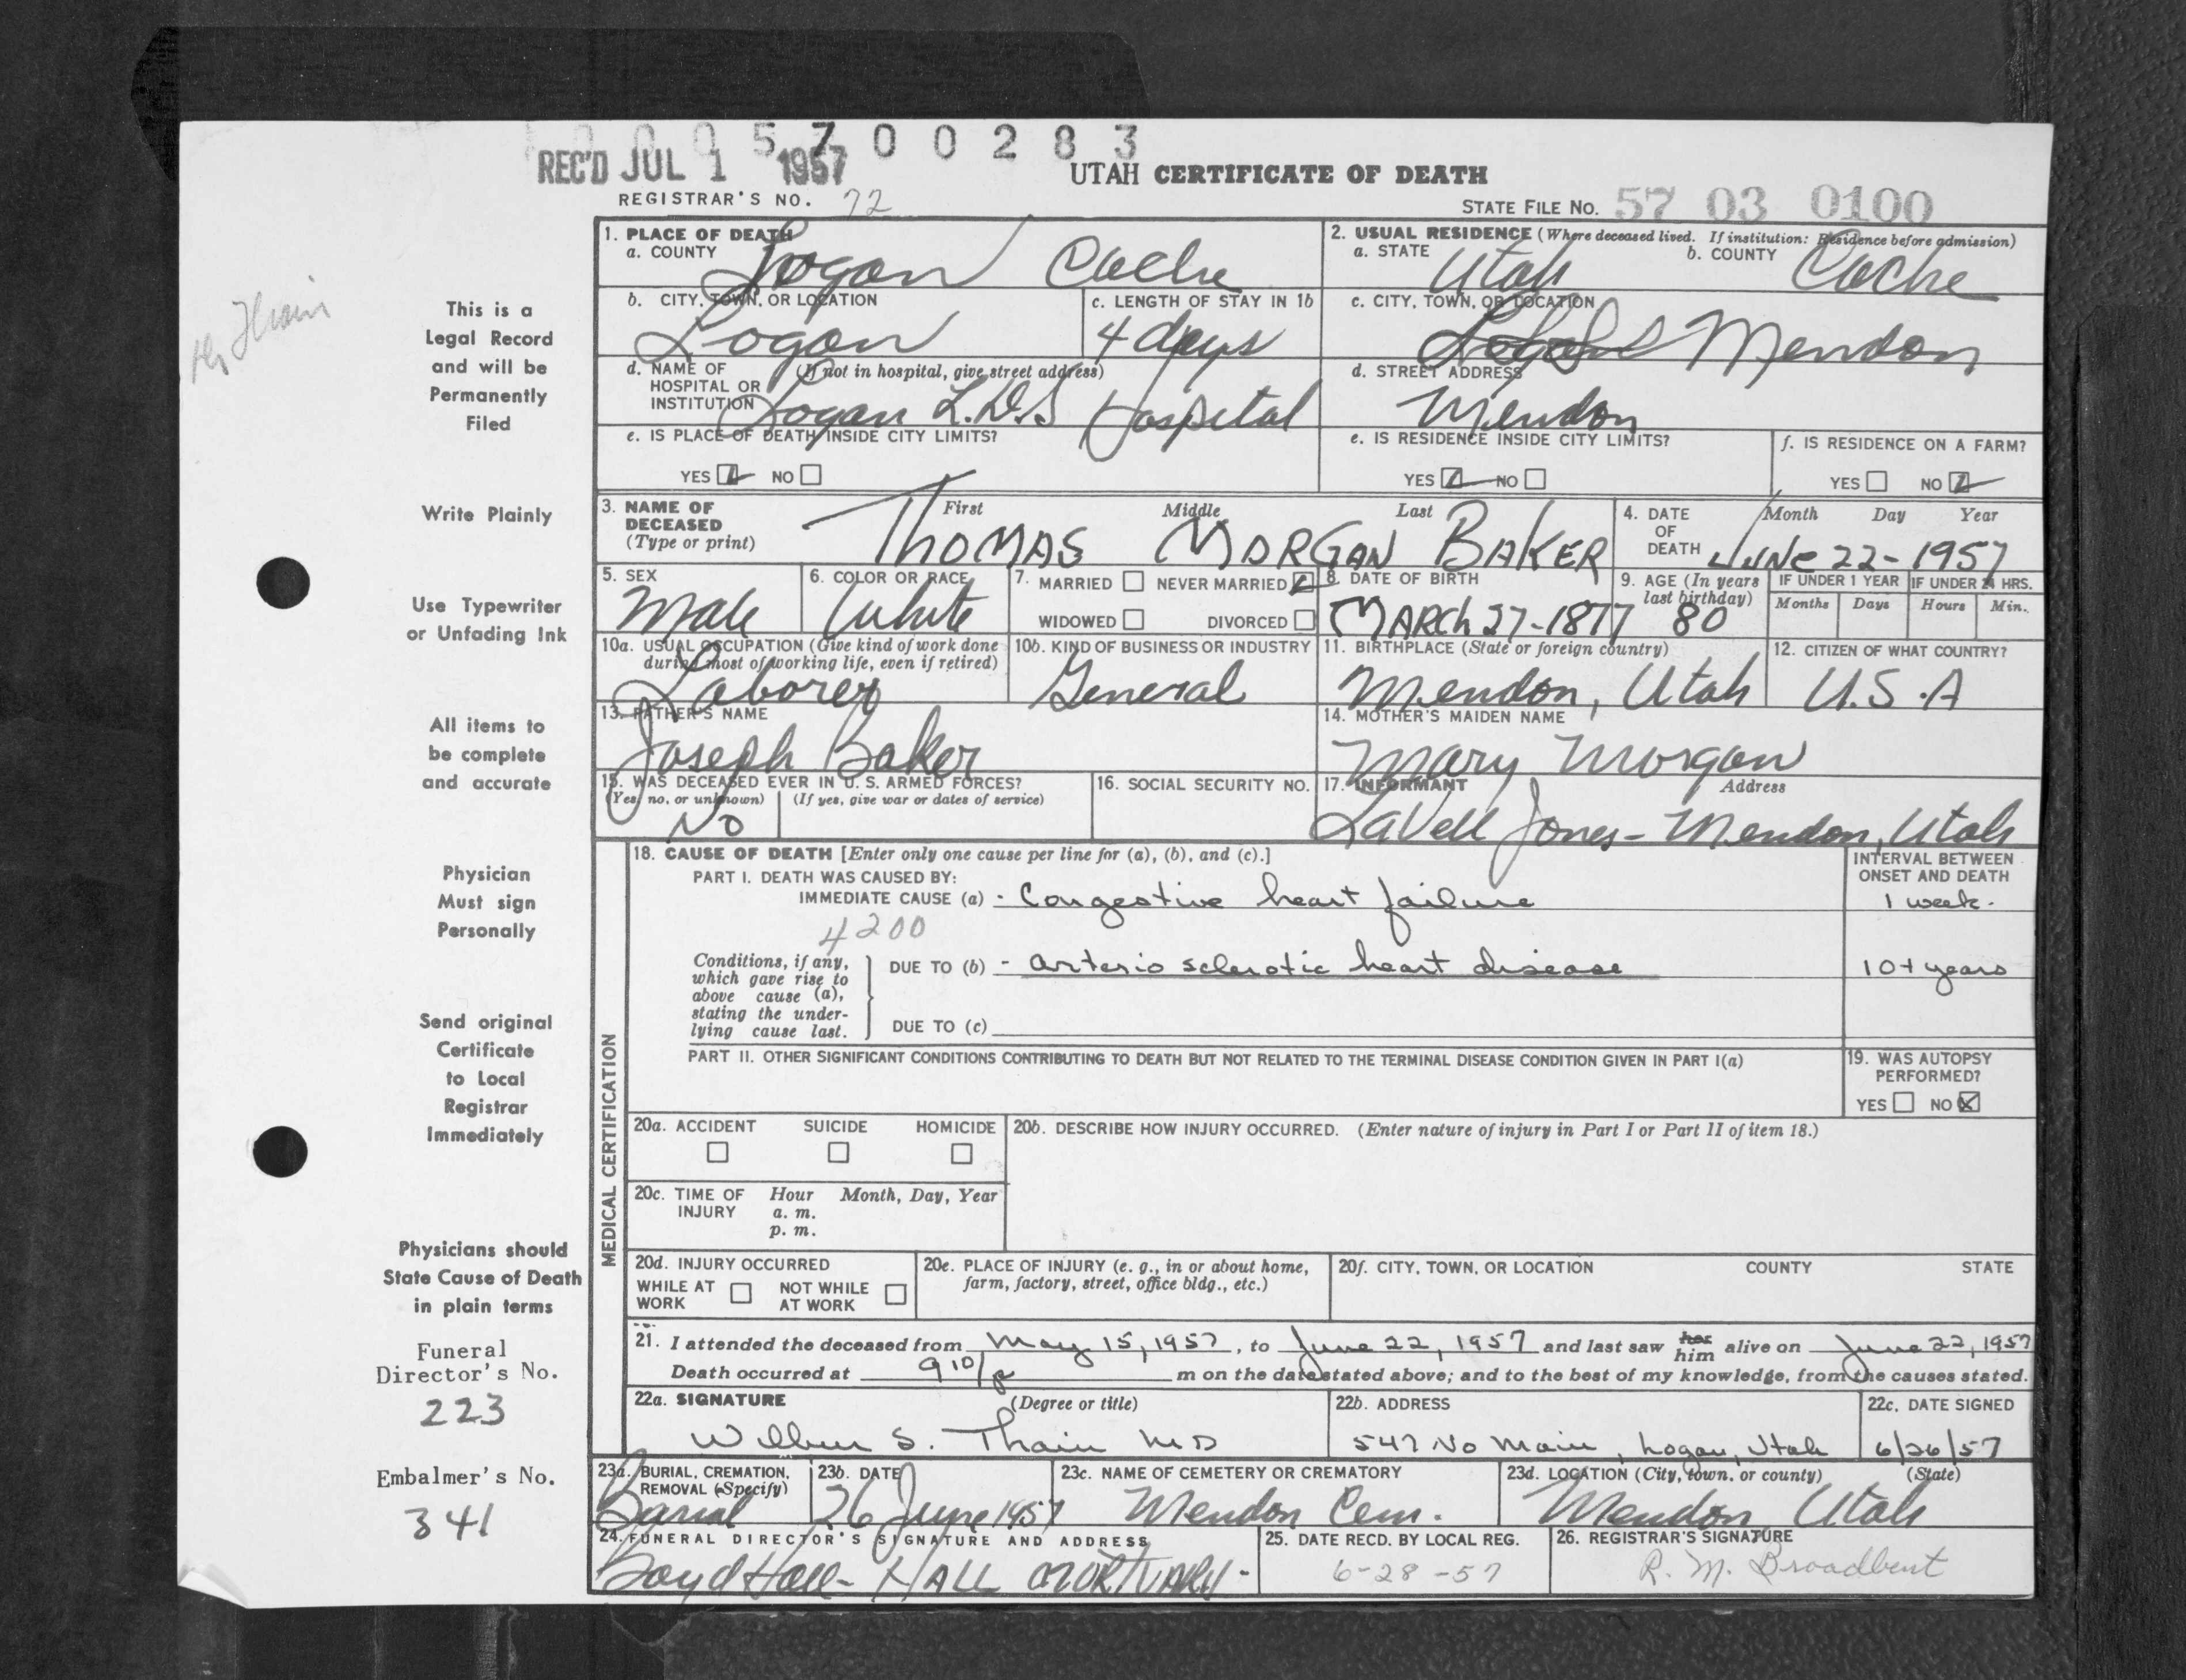 0005700283
REC'D JUL 1 1957
UTAH CERTIFICATE OF DEATH
REGISTRAR'S NO. 72
STATE FILE NO. 57 03 0100
1. PLACE OF DEATH
a. COUNTY Logan Cache
2. USUAL RESIDENCE (Where deceased lived. If institution: Residence before admission)
a. STATE Utah b. COUNTY Cache
b. CITY, TOWN, OR LOCATION Logan
c. LENGTH OF STAY IN 1b 4 days
c. CITY, TOWN, OR LOCATION Mendon
d. NAME OF HOSPITAL OR INSTITUTION (If not in hospital, give street address) Logan L.D.S Hospital
d. STREET ADDRESS Mendon
e. IS PLACE OF DEATH INSIDE CITY LIMITS?
YES NO
e. IS RESIDENCE INSIDE CITY LIMITS?
YES NO
f. IS RESIDENCE ON A FARM?
YES NO
3. NAME OF DECEASED (Type or print)
First Middle Last
THOMAS MORGAN BAKER
4. DATE OF DEATH Month Day Year
JUNE 22-1957
5. SEX Male
6. COLOR OR RACE White
7. MARRIED NEVER MARRIED
WIDOWED DIVORCED
8. DATE OF BIRTH MARCH 27-1877
9. AGE (In years last birthday) 80
IF UNDER 1 YEAR Months Days
IF UNDER 24 HRS. Hours Min.
10a. USUAL OCCUPATION (Give kind of work done during most of working life, even if retired) Laborer
10b. KIND OF BUSINESS OR INDUSTRY General
11. BIRTHPLACE (State or foreign country) Mendon, Utah
12. CITIZEN OF WHAT COUNTRY? U.S.A
13. FATHER'S NAME Joseph Baker
14. MOTHER'S MAIDEN NAME Mary Morgan
15. WAS DECEASED EVER IN U. S. ARMED FORCES?
(Yes, no, or unknown) (If yes, give war or dates of service)
No
16. SOCIAL SECURITY NO.
17. INFORMANT Address
LaVell Jones - Mendon, Utah
MEDICAL CERTIFICATION
18. CAUSE OF DEATH [Enter only one cause per line for (a), (b), and (c).]
INTERVAL BETWEEN ONSET AND DEATH
PART I. DEATH WAS CAUSED BY:
IMMEDIATE CAUSE (a) - Congestive heart failure 1 week.
4200
Conditions, if any, which gave rise to above cause (a), stating the underlying cause last.
DUE TO (b) - arterio sclerotic heart disease 10+ years
DUE TO (c)
PART II. OTHER SIGNIFICANT CONDITIONS CONTRIBUTING TO DEATH BUT NOT RELATED TO THE TERMINAL DISEASE CONDITION GIVEN IN PART I(a)
19. WAS AUTOPSY PERFORMED?
YES NO
20a. ACCIDENT SUICIDE HOMICIDE
20b. DESCRIBE HOW INJURY OCCURRED. (Enter nature of injury in Part I or Part II of item 18.)
20c. TIME OF INJURY Hour Month, Day, Year
a. m.
p. m.
20d. INJURY OCCURRED
WHILE AT WORK NOT WHILE AT WORK
20e. PLACE OF INJURY (e. g., in or about home, farm, factory, street, office bldg., etc.)
20f. CITY, TOWN, OR LOCATION COUNTY STATE
21. I attended the deceased from May 15, 1957, to June 22, 1957 and last saw her him alive on June 22, 1957
Death occurred at 9 10/p m on the date stated above; and to the best of my knowledge, from the causes stated.
22a. SIGNATURE (Degree or title)
Wilbur S. Thain MD
22b. ADDRESS
547 No Main, Logan, Utah
22c. DATE SIGNED
6/26/57
23a. BURIAL, CREMATION, REMOVAL (Specify) Burial
23b. DATE 26 June 1957
23c. NAME OF CEMETERY OR CREMATORY Mendon Cem.
23d. LOCATION (City, town, or county) (State) Mendon Utah
24. FUNERAL DIRECTOR'S SIGNATURE AND ADDRESS
Boyd Hall - HALL MORTUARY -
25. DATE RECD. BY LOCAL REG.
6-28-57
26. REGISTRAR'S SIGNATURE
R. M. Broadbent
Thain
This is a
Legal Record
and will be
Permanently
Filed
Write Plainly
Use Typewriter
or Unfading Ink
All items to
be complete
and accurate
Physician
Must sign
Personally
Send original
Certificate
to Local
Registrar
Immediately
Physicians should
State Cause of Death
in plain terms
Funeral
Director's No.
223
Embalmer's No.
341